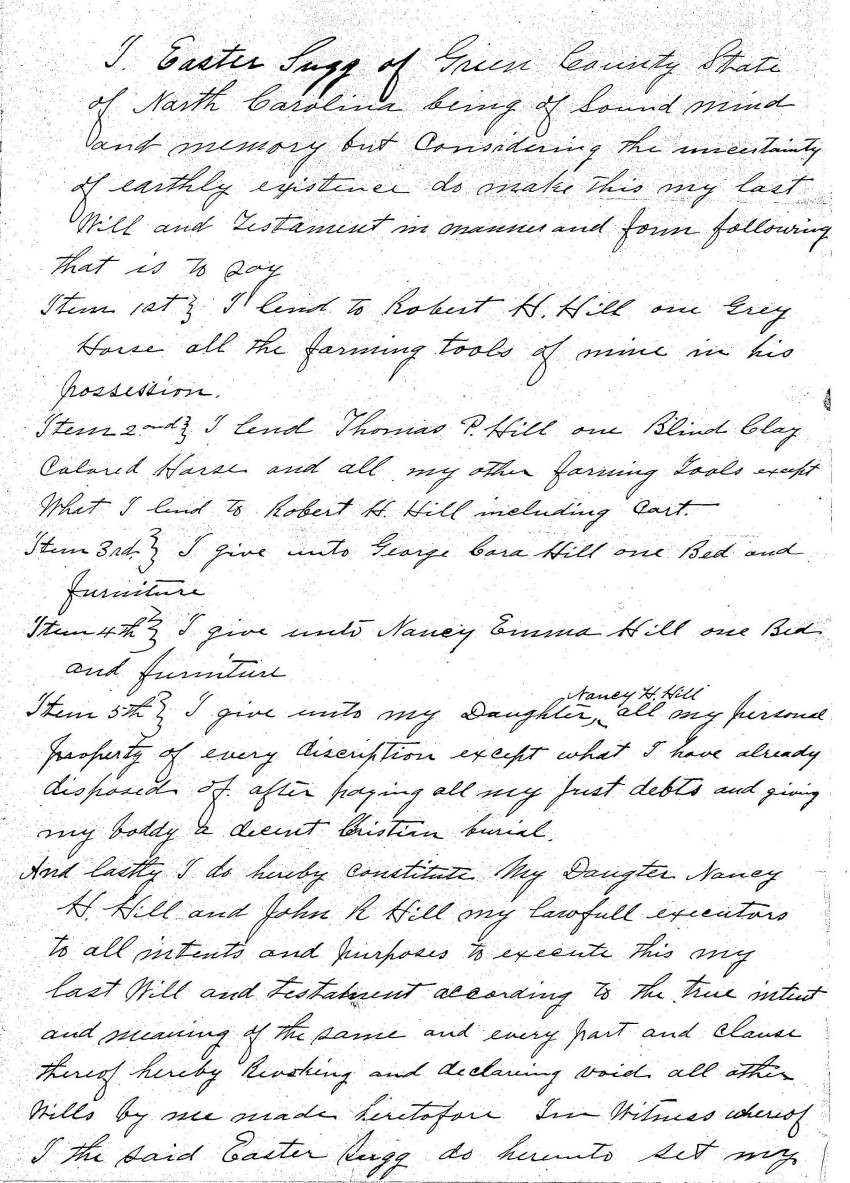 I. Easter Sugg of Green County State
of North Carolina being of Sound mind
and memory but Considering the uncertainty
of earthly existence do make this my last
Will and Testament in manner and form following
that is to say
Item 1st} I lend to Robert H. Hill one Grey
Horse all the farming tools of mine in his
possession.
Item 2nd} I lend Thomas P. Hill one Blind Clay
Colored Horse and all my other farming Tools except
What I lend to Robert H. Hill including Cart.
Item 3rd.} I give unto George Cora Hill one Bed and
furniture
Item 4th} I give unto Nancy Emma Hill one Bed
and furniture
Nancy H. Hill
Item 5th} I give unto my Daughter, ‸ all my personal
property of every discription except what I have already
disposed of after paying all my just debts and giving
my boddy a decent Cristian burial.
And lastly I do hereby constitute My Daugter Nancy
H. Hill and John R Hill my lawfull executors
to all intents and purposes to execute this my
last Will and testament according to the true intent
and meaning of the same and every part and clause
thereof hereby Revoking and declareing void all other
Wills by me made heretofore In Witness whereof
I the said Easter Sugg do hereunto set my